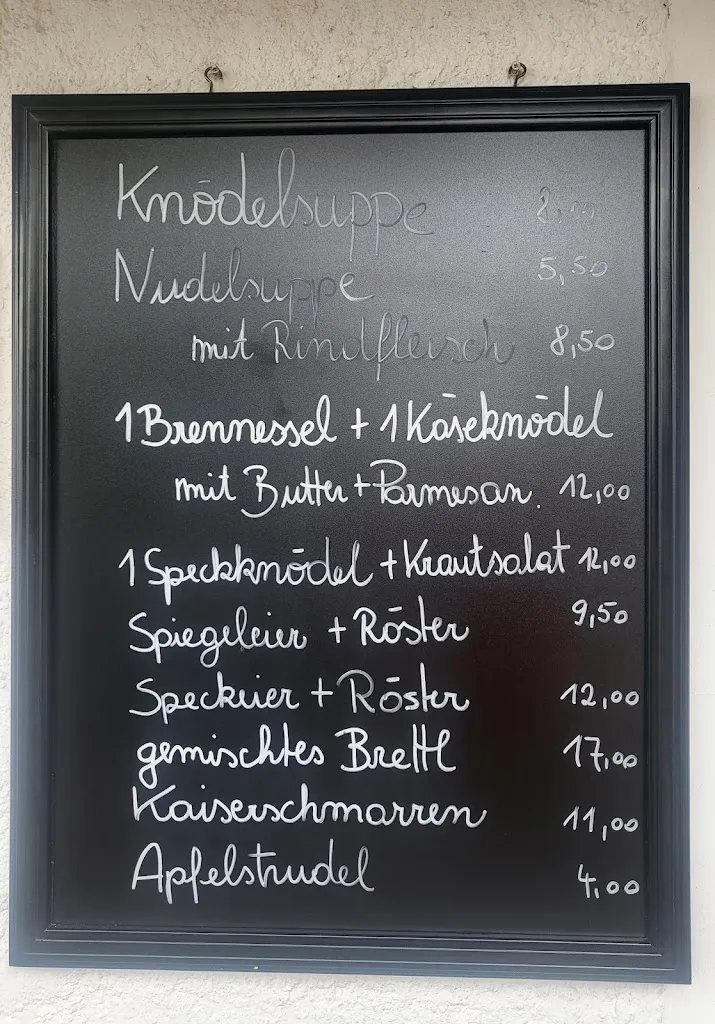 Knödelsuppe 8,00
Nudelsuppe 5,50
mit Rindfleisch 8,50
1 Brennessel + 1 Käseknödel
mit Butter + Parmesan. 12,00
1 Speckknödel + Krautsalat 12,00
Spiegeleier + Röster 9,50
Speckeier + Röster 12,00
gemischtes Brettl 17,00
Kaiserschmarren 11,00
Apfelstrudel 4,00